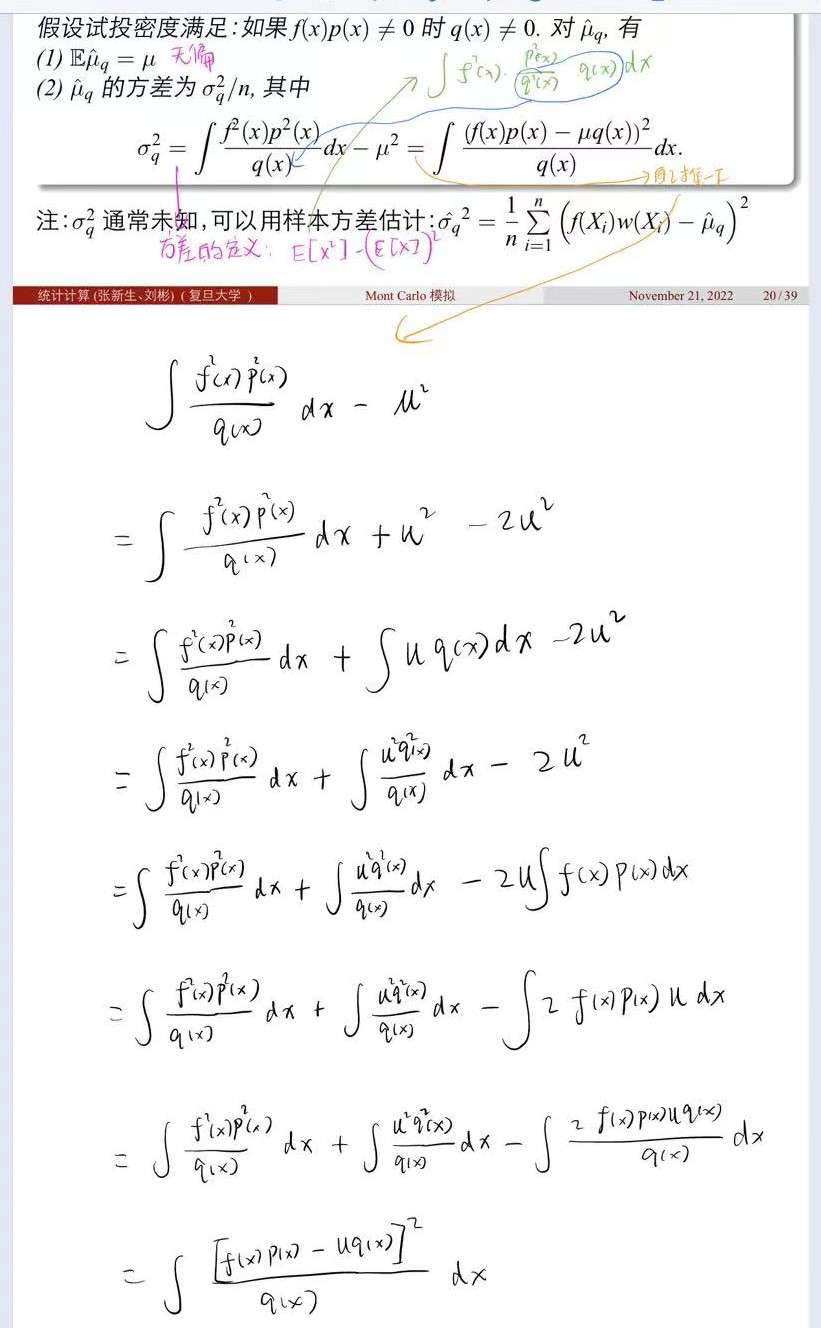 假设试投密度满足:如果 f(x)p(x) ≠ 0 时 q(x) ≠ 0. 对 μ̂_q, 有
(1) 𝔼μ̂_q = μ 无偏
(2) μ̂_q 的方差为 σ_q²/n, 其中
∫ f²(x)· p²(x)/q²(x) q(x) dx
σ_q² = ∫ f²(x)p²(x)/q(x) dx − μ² = ∫ (f(x)p(x) − μq(x))²/q(x) dx.
注:σ_q² 通常未知,可以用样本方差估计:σ̂_q² = 1/n ∑_{i=1}^{n} (f(X_i)w(X_i) − μ̂_q)²
方差的定义: E[X²]-(E[X])²
统计计算 (张新生、刘彬) ( 复旦大学 ) Mont Carlo 模拟 November 21, 2022 20 / 39
∫ f²(x)p²(x)/q(x) dx − u²
= ∫ f²(x)p²(x)/q(x) dx + u² − 2u²
= ∫ f²(x)p²(x)/q(x) dx + ∫ u q(x)dx − 2u²
= ∫ f²(x)p²(x)/q(x) dx + ∫ u²q²(x)/q(x) dx − 2u²
= ∫ f²(x)p²(x)/q(x) dx + ∫ u²q²(x)/q(x) dx − 2u∫ f(x)p(x)dx
= ∫ f²(x)p²(x)/q(x) dx + ∫ u²q²(x)/q(x) dx − ∫ 2 f(x)p(x) u dx
= ∫ f²(x)p²(x)/q(x) dx + ∫ u²q²(x)/q(x) dx − ∫ 2 f(x)p(x)uq(x)/q(x) dx
= ∫ [f(x)p(x) − uq(x)]²/q(x) dx